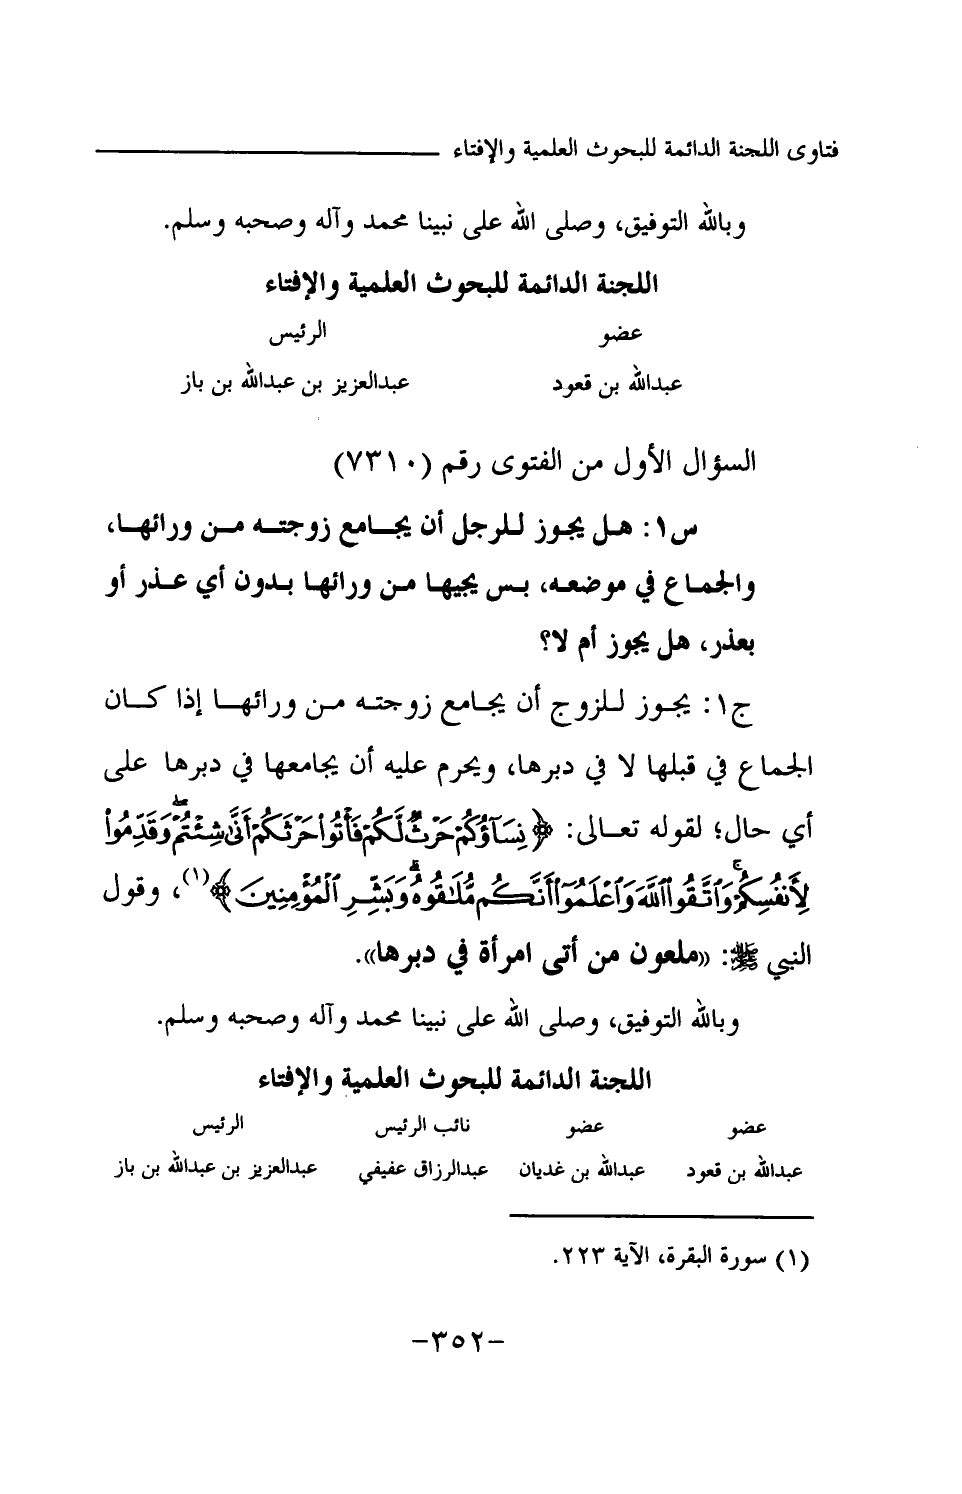 فتاوى اللجنة الدائمة للبحوث العلمية والإفتاء
وبالله التوفيق، وصلى الله على نبينا محمد وآله وصحبه وسلم.
اللجنة الدائمة للبحوث العلمية والإفتاء
عضو الرئيس
عبدالله بن قعود عبدالعزيز بن عبدالله بن باز
السؤال الأول من الفتوى رقم (٧٣١٠)
س١: هل يجوز للرجل أن يجامع زوجته من ورائها،
والجماع في موضعه، بس يجيها من ورائها بدون أي عذر أو
بعذر، هل يجوز أم لا؟
ج١: يجوز للزوج أن يجامع زوجته من ورائها إذا كان
الجماع في قبلها لا في دبرها، ويحرم عليه أن يجامعها في دبرها على
أي حال؛ لقوله تعالى: ﴿نِسَآؤُكُمْ حَرْثٌ لَّكُمْ فَأْتُوا۟ حَرْثَكُمْ أَنَّىٰ شِئْتُمْ ۖ وَقَدِّمُوا۟
لِأَنفُسِكُمْ ۚ وَٱتَّقُوا۟ ٱللَّهَ وَٱعْلَمُوٓا۟ أَنَّكُم مُّلَـٰقُوهُ ۗ وَبَشِّرِ ٱلْمُؤْمِنِينَ﴾(١)، وقول
النبي ﷺ: «ملعون من أتى امرأة في دبرها».
وبالله التوفيق، وصلى الله على نبينا محمد وآله وصحبه وسلم.
اللجنة الدائمة للبحوث العلمية والإفتاء
عضو عضو نائب الرئيس الرئيس
عبدالله بن قعود عبدالله بن غديان عبدالرزاق عفيفي عبدالعزيز بن عبدالله بن باز
(١) سورة البقرة، الآية ٢٢٣.
-٣٥٢-